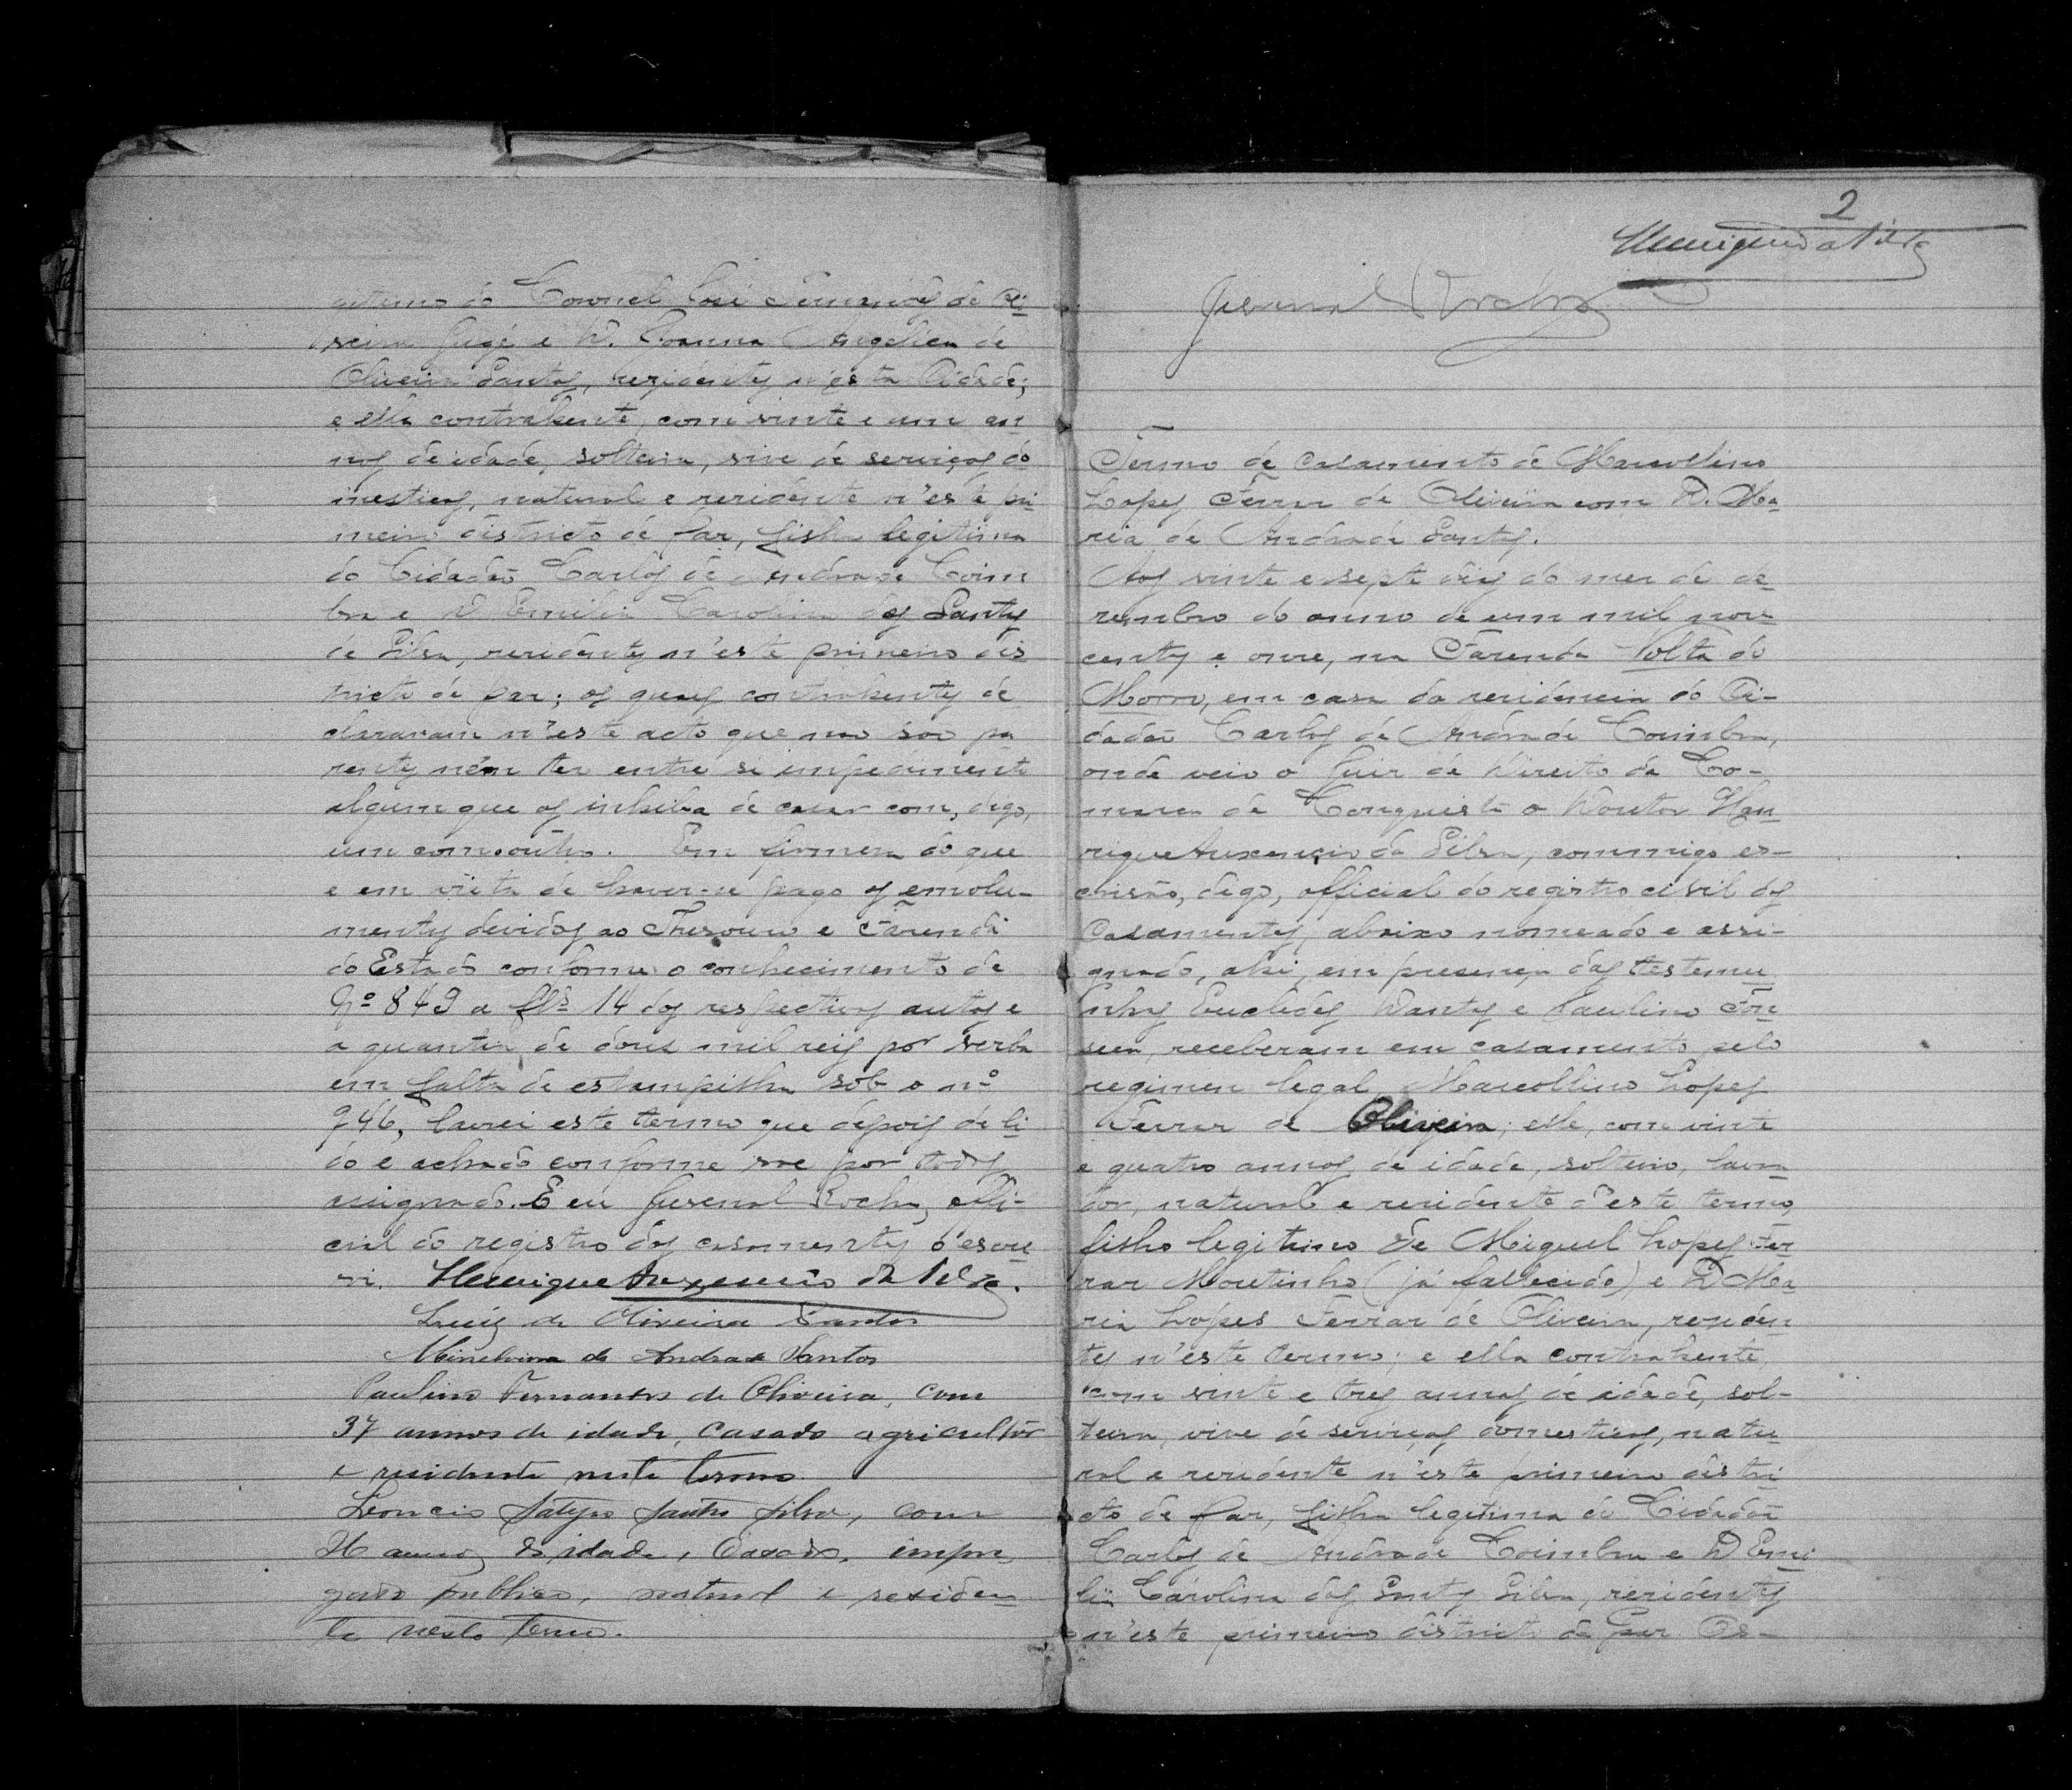 do Coronel José Fernandes de Oli
veira Gugé e D. Joanna Angelica de
Oliveira Santos, rezidentes n'esta Cidade;
e ella contrahente, com vinte e um an
nos de idade, solteira, vive de serviços do
mesticos, natural e rezidente n'este pri
meiro districto de paz, filha legitima
do Cidadão Carlos de Andrade Coim
bra e D Emilia Carolina dos Santos
da Silva, rezidentes n'este primeiro dis
tricto de paz; os quaes contrahentes de
clararam n'este acto que não são pa
rentes nem ter entre si impedimento
algum que os inhiba de casar com, digo,
um com outro. Em firmeza do que
e em vista de haver-se pago os emolu-
mentos devidos ao Thesouro e Fazenda
do Estado conforme o conhecimento de
Nº 849 a fls 14 dos respectivos autos e
a quantia de dous mil reis por verba
em falta de estampilha sob o nº
946, lavrei este termo que depois de li
do e achado conforme vae por todos
assignado. E eu Juvenal Rocha, offi-
cial do registro dos casamentos o escre
vi. Henrique Auxencio da Silva.
Luiz de Oliveira Santos
Minelvina de Andrade Santos
Paulino Fernandes de Oliveira, com
37 annos de idade, casado agricultor
e residente neste termo
Leoncio Satyro Santos Silva, com
annos de idade, Casado, impre
gado publico, natural e residen
te neste termo.
2
Henrique da Silva
Juvenal Rocha
Termo de casamento de Marcollino
Lopes Ferraz de Oliveira com D. Ma
ria de Andrade Santos.
Aos vinte e sept dias do mez de de
zembro do anno de um mil nove
centos e onze, na Fazenda Volta do
Morro, em casa da rezidencia do Ci-
dadão Carlos de Andrade Coimbra,
onde veio o Juiz de Direito da Co-
marca de Conquista o Doutor Hen
rique Auxencio da Silva, commigo es-
crivão, digo, official do registro civil dos
Casamentos, abaixo nomeado e assi-
gnado, ahi, em presença das testemu
nhas Euclides Dantas e Paulino Fon
seca, receberam em casamento pelo
regimen legal Marcollino Lopes
Ferraz de Oliveira; elle, com vinte
e quatro annos de idade, solteiro, lavra
dor, natural e rezidente d'este termo,
filho legitimo de Miguel Lopes Fer
raz Moutinho (já fallecido) e D Ma
ria Lopes Ferraz de Oliveira, residen
tes n'este termo; e ella contrahente
com vinte e tres annos de idade, sol-
teira, vive de serviços domesticos, natu
ral e rezidente n'este primeiro distri
cto de paz, filha legitima do Cidadão
Carlos de Andrade Coimbra e D Emi
lia Carolina dos Santos Silva, rezidentes
n'este primeiro districto de paz Os-